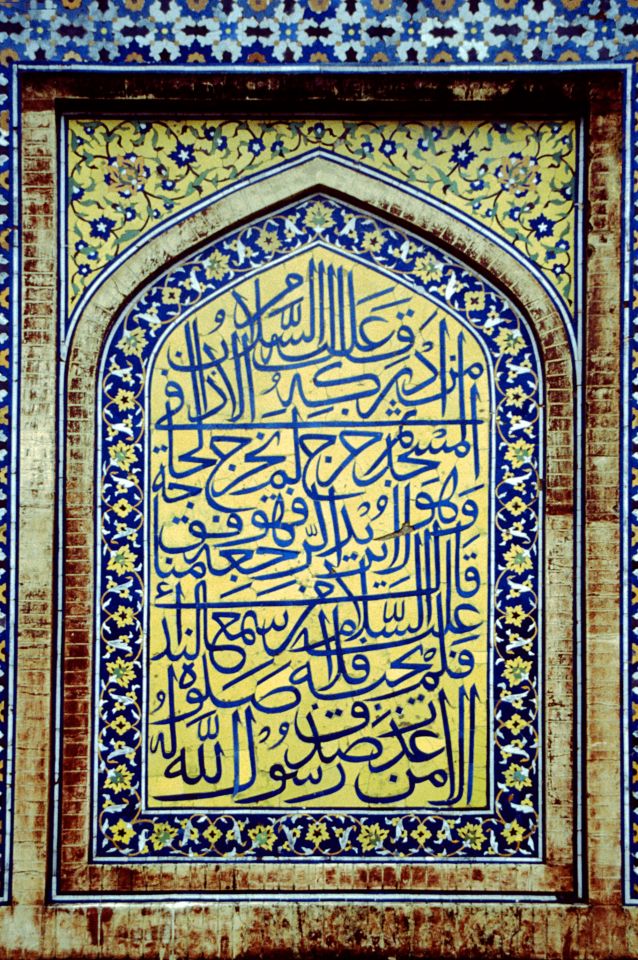 قال عليه السلام من ادركه الاذان في
المسجد ثم خرج لم يخرج لحاجة
وهو لا يريد الرجعة فهو منافق
قال عليه السلام من سمع النداء
فلم يجب فلا صلوة له
الا من عذر صدق رسول الله